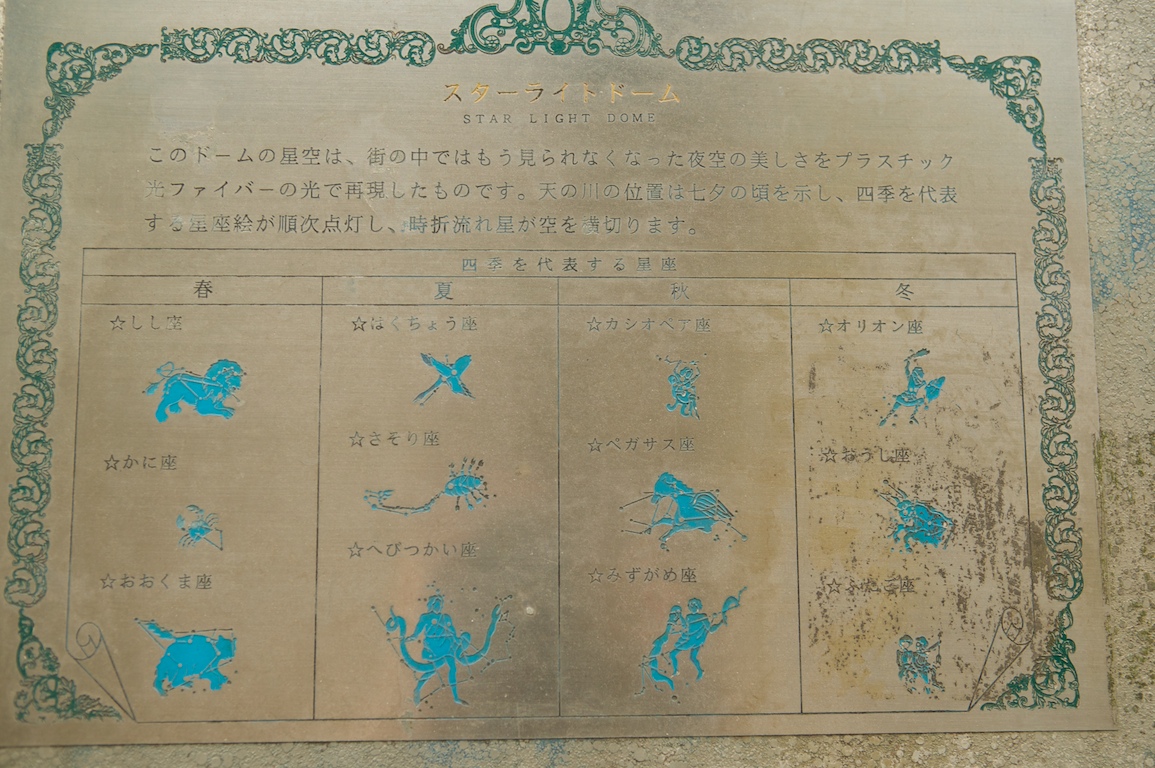 スターライトドーム
STAR LIGHT DOME
このドームの星空は、街の中ではもう見られなくなった夜空の美しさをプラスチック
光ファイバーの光で再現したものです。天の川の位置は七夕の頃を示し、四季を代表
する星座絵が順次点灯し、時折流れ星が空を横切ります。
四季を代表する星座
春
☆しし座
☆かに座
☆おおくま座
夏
☆はくちょう座
☆さそり座
☆へびつかい座
秋
☆カシオペア座
☆ペガサス座
☆みずがめ座
冬
☆オリオン座
☆おうし座
☆ふたご座